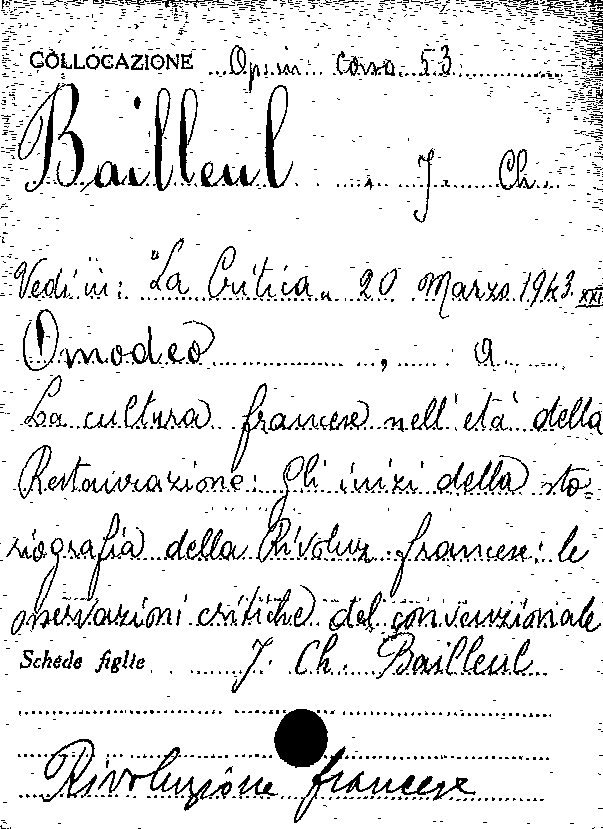 COLLOCAZIONE Opusc. cons. 53
Bailleul, J. Ch.
Vedi in: "La Critica" 20 Marzo 1943. XXI
Omodeo, A.
La cultura francese nell'età della
Restaurazione: Gli inizi della sto-
riografia della Rivoluz. francese: le
osservazioni critiche del convenzionale
Schede figlie J. Ch. Bailleul
Rivoluzione francese